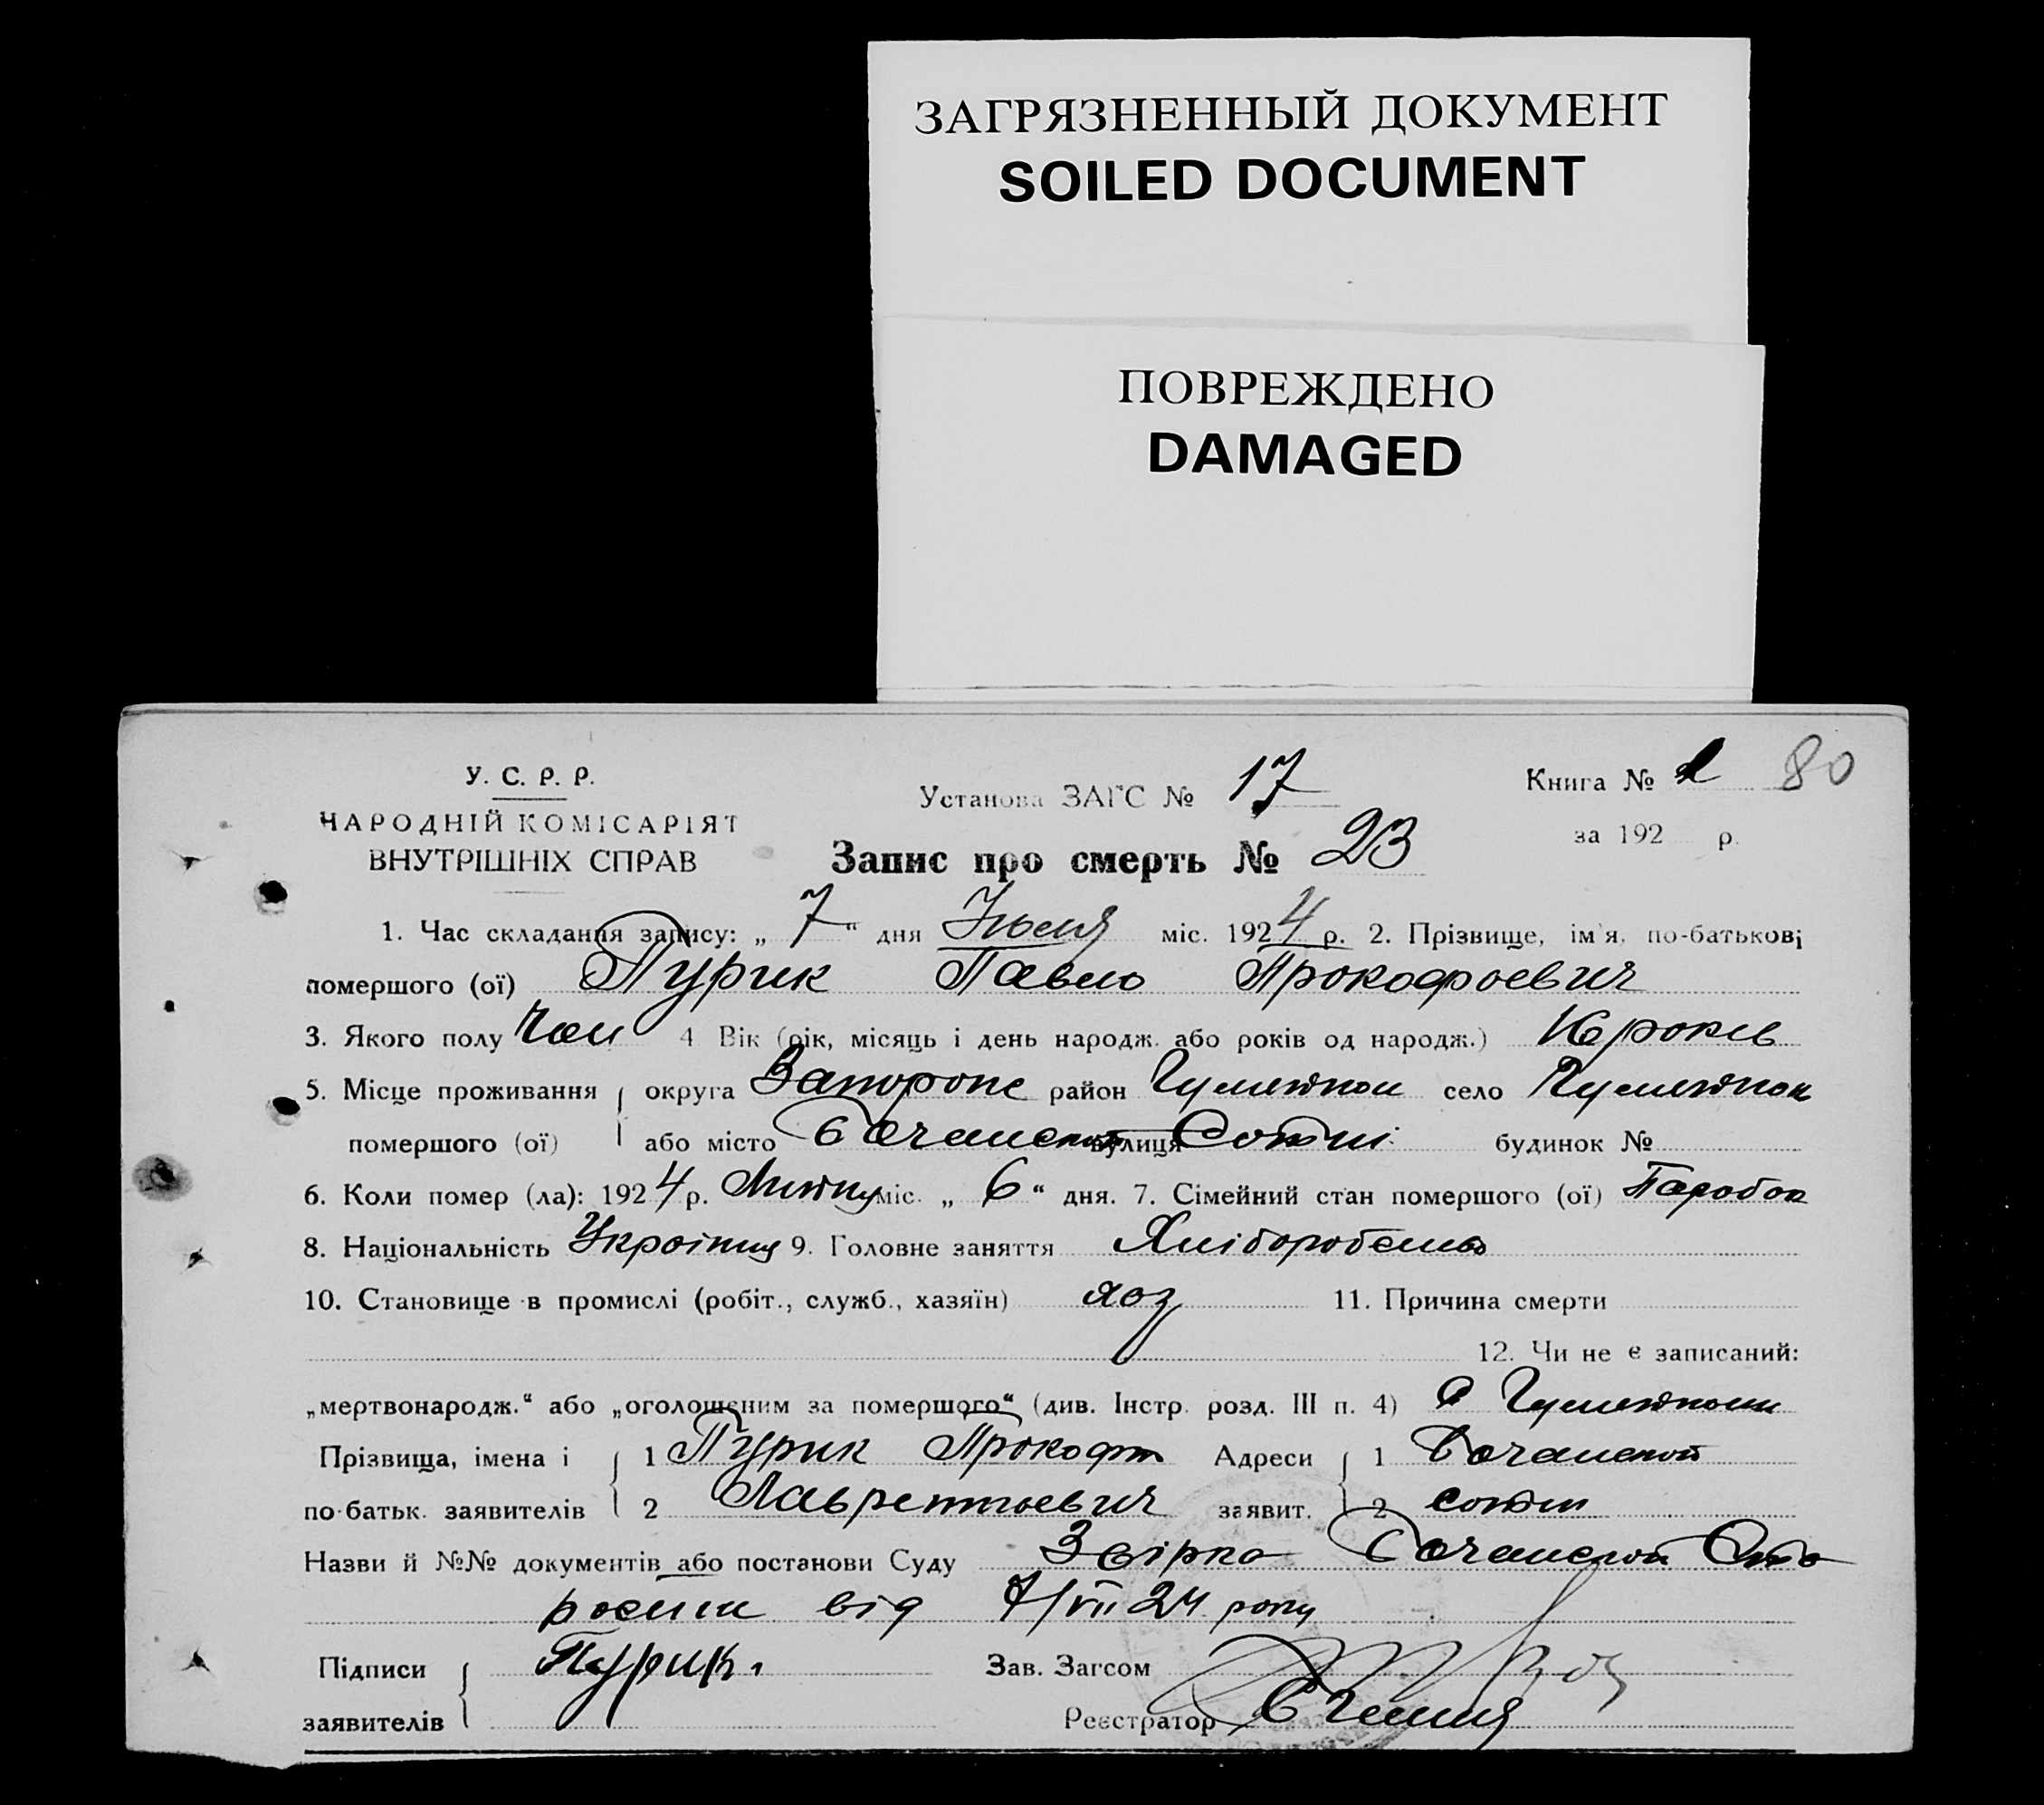 ЗАГРЯЗНЕННЫЙ ДОКУМЕНТ
SOILED DOCUMENT
ПОВРЕЖДЕНО
DAMAGED
У. С. Р. Р.
НАРОДНІЙ КОМІСАРІЯТ
ВНУТРІШНІХ СПРАВ
Установа ЗАГС № 17
Книга № 80
за 192 р.
Запис про смерть № 23
1. Час складання запису: „ 7 “ дня міс. 1924 р. 2. Прізвище, ім'я, по-батькові
помершого (ої) Пурик Павло Прокофьевич
3. Якого полу Чол 4 Вік (рік, місяць і день народж. або років од народж.) 16 років
5. Місце проживання округа Запорож район село
помершого (ої) або місто вулиця Сотні будинок №
6. Коли помер (ла): 1924 р. Липня міс. „ 6 “ дня. 7. Сімейний стан помершого (ої) Паробок
8. Національність 9. Головне заняття
10. Становище в промислі (робіт., служб., хазяїн) хоз 11. Причина смерти
12. Чи не є записаний:
„мертвонародж.“ або „оголошеним за помершого“ (див. Інстр. розд. III п. 4)
Прізвища, імена і 1 Пурик Прокофт Адреси 1
по-батьк. заявителів 2 Лаврентьевич заявит. 2 сотни
Назви й №№ документів або постанови Суду
від 7/VII 24 року
Підписи Пурик.
Зав. Загсом
заявителів
Реєстратор